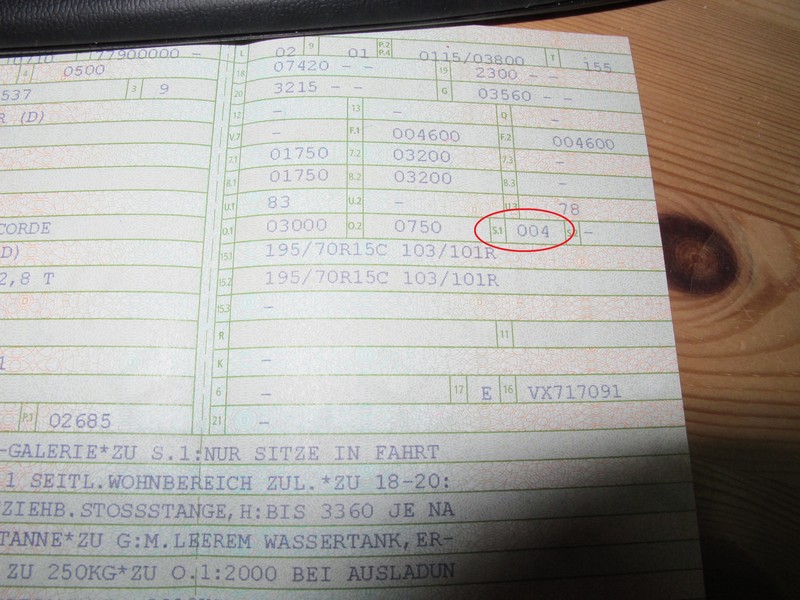 177900000 - L 02 9 01 P.2 P.4 0115/03800 T 155
4 0500 18 07420 - - 19 2300 - -
537 3 9 20 3215 - - G 03560 - -
R (D) 12 - 13 - Q -
V.7 - F.1 004600 F.2 004600
7.1 01750 7.2 03200 7.3 -
8.1 01750 8.2 03200 8.3 -
U.1 83 U.2 - U.3 78
CORDE O.1 03000 O.2 0750 S.1 004 S.2 -
D) 15.1 195/70R15C 103/101R
2,8 T 15.2 195/70R15C 103/101R
15.3 -
R 11
1 K -
6 - 17 E 16 VX717091
P.1 02685 21 -
-GALERIE*ZU S.1:NUR SITZE IN FAHRT
1 SEITL.WOHNBEREICH ZUL.*ZU 18-20:
ZIEHB.STOSSSTANGE,H:BIS 3360 JE NA
TANNE*ZU G:M.LEEREM WASSERTANK,ER-
ZU 250KG*ZU O.1:2000 BEI AUSLADUN